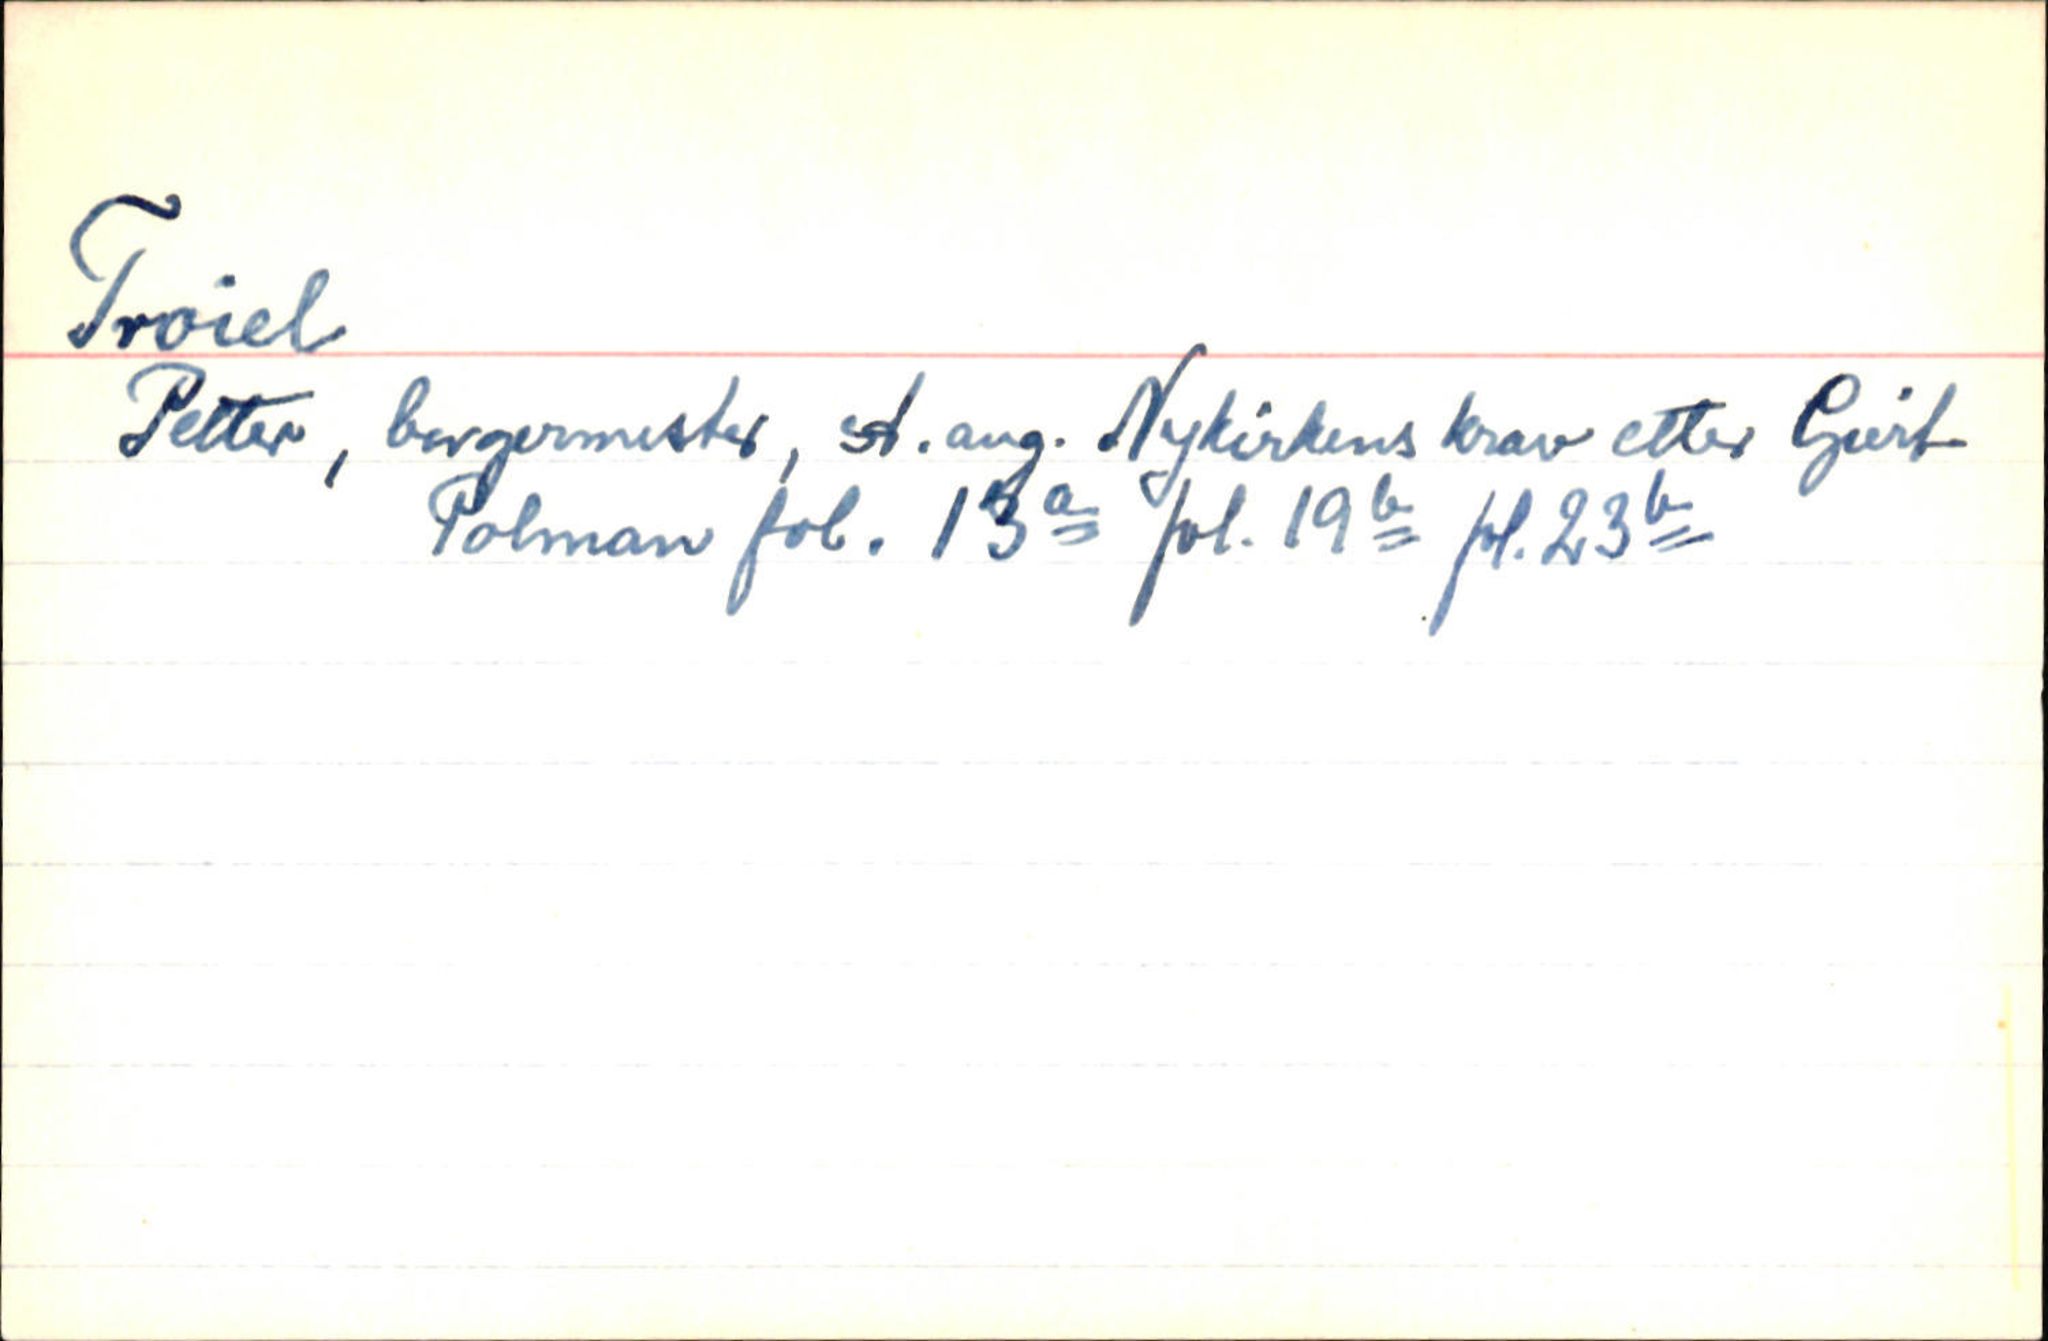 Troiel
Petter, borgermester, st. ang. Nykirkens krav etter Giert
Polman fol. 13a fol. 19b fol. 23b